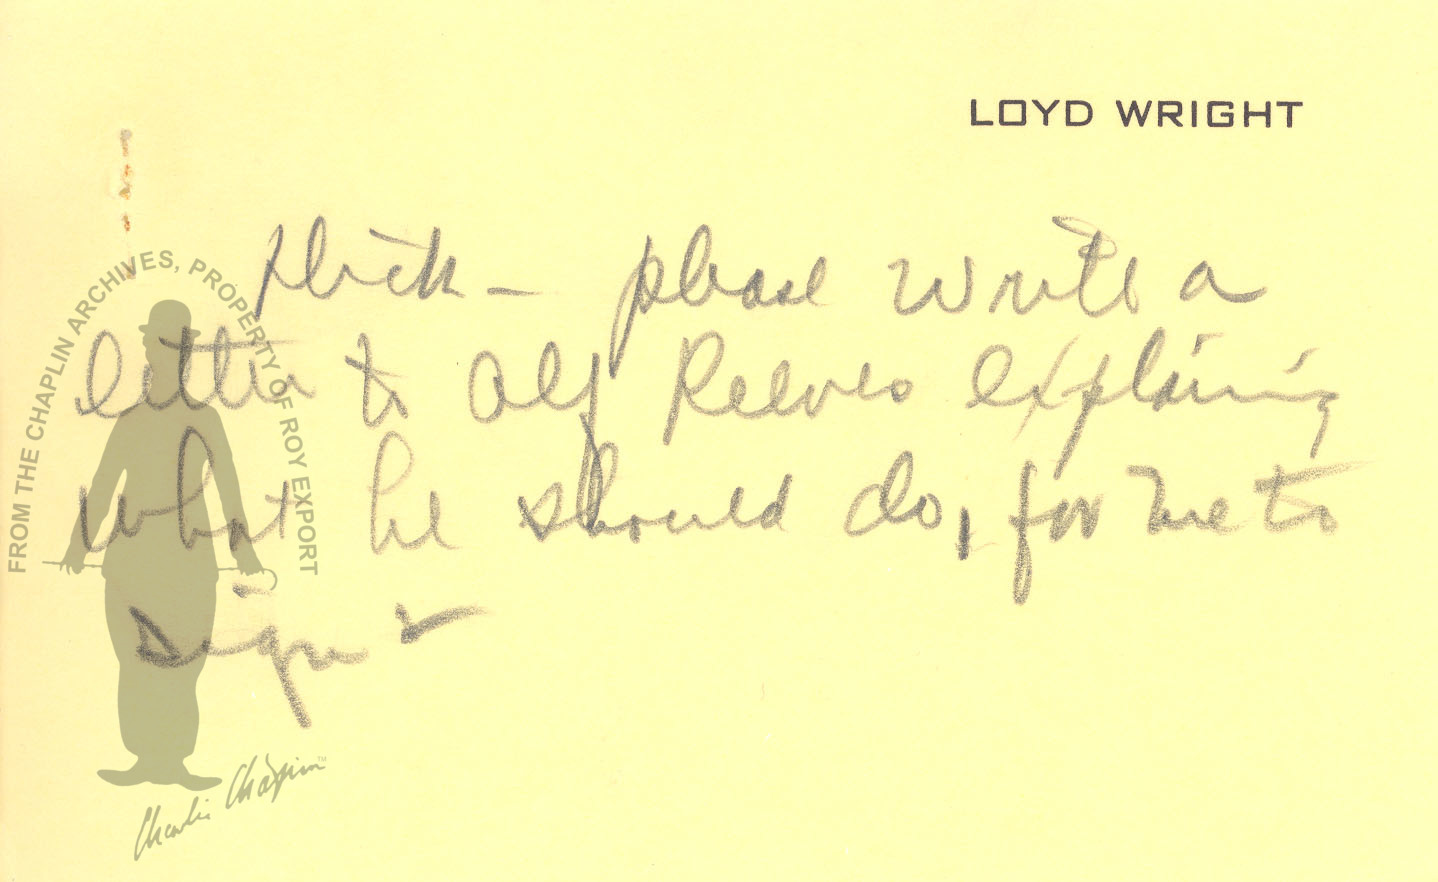 LOYD WRIGHT
please write a
letter to Alf Reeves explaining
what he should do, for me to
sign
FROM THE CHAPLIN ARCHIVES, PROPERTY OF ROY EXPORT
Charlie Chaplin™